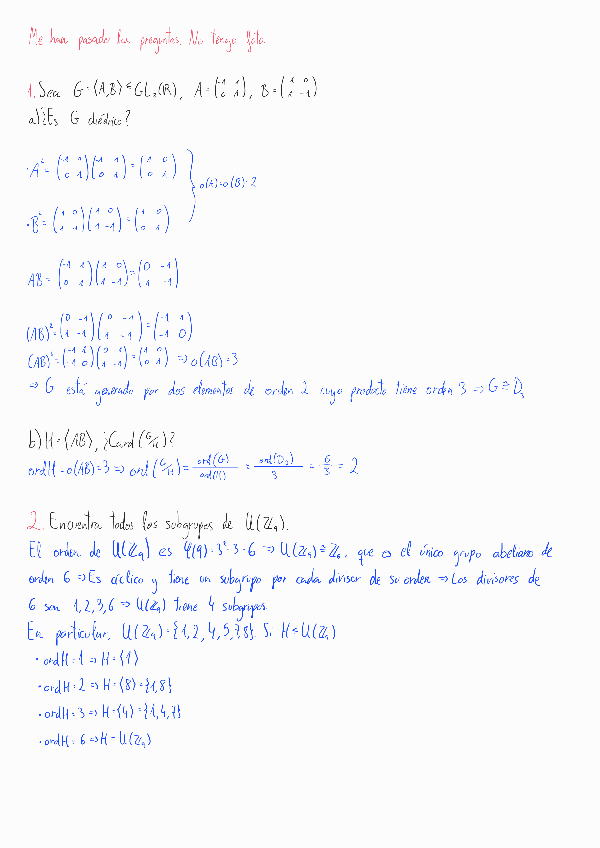 Me han pasado las preguntas. No tengo foto.
1. Sea G = ⟨A,B⟩ ≤ GL₂(ℝ), A = (-1 1 / 0 1), B = (1 0 / 1 -1)
a) ¿Es G diédrico?
· A² = (-1 1 / 0 1)(-1 1 / 0 1) = (1 0 / 0 1)
o(A) = o(B) = 2
· B² = (1 0 / 1 -1)(1 0 / 1 -1) = (1 0 / 0 1)
AB = (-1 1 / 0 1)(1 0 / 1 -1) = (0 -1 / 1 -1)
(AB)² = (0 -1 / 1 -1)(0 -1 / 1 -1) = (-1 1 / -1 0)
(AB)³ = (-1 1 / -1 0)(0 -1 / 1 -1) = (1 0 / 0 1) ⇒ o(AB) = 3
⇒ G está generado por dos elementos de orden 2 cuyo producto tiene orden 3 ⇒ G ≅ D₃
b) H = ⟨AB⟩, ¿Card(G/H)?
ord H = o(AB) = 3 ⇒ ord(G/H) = ord(G)/ord(H) = ord(D₃)/3 = 6/3 = 2
2. Encuentra todos los subgrupos de U(ℤ₉).
El orden de U(ℤ₉) es φ(9) = 3² - 3 = 6 ⇒ U(ℤ₉) ≅ ℤ₆, que es el único grupo abeliano de
orden 6 ⇒ Es cíclico y tiene un subgrupo por cada divisor de su orden ⇒ Los divisores de
6 son 1, 2, 3, 6 ⇒ U(ℤ₉) tiene 4 subgrupos.
En particular, U(ℤ₉) = {1, 2, 4, 5, 7, 8}. Si H ≤ U(ℤ₉)
· ord H = 1 ⇒ H = {1}
· ord H = 2 ⇒ H = ⟨8⟩ = {1, 8}
· ord H = 3 ⇒ H = ⟨4⟩ = {1, 4, 7}
· ord H = 6 ⇒ H = U(ℤ₉)